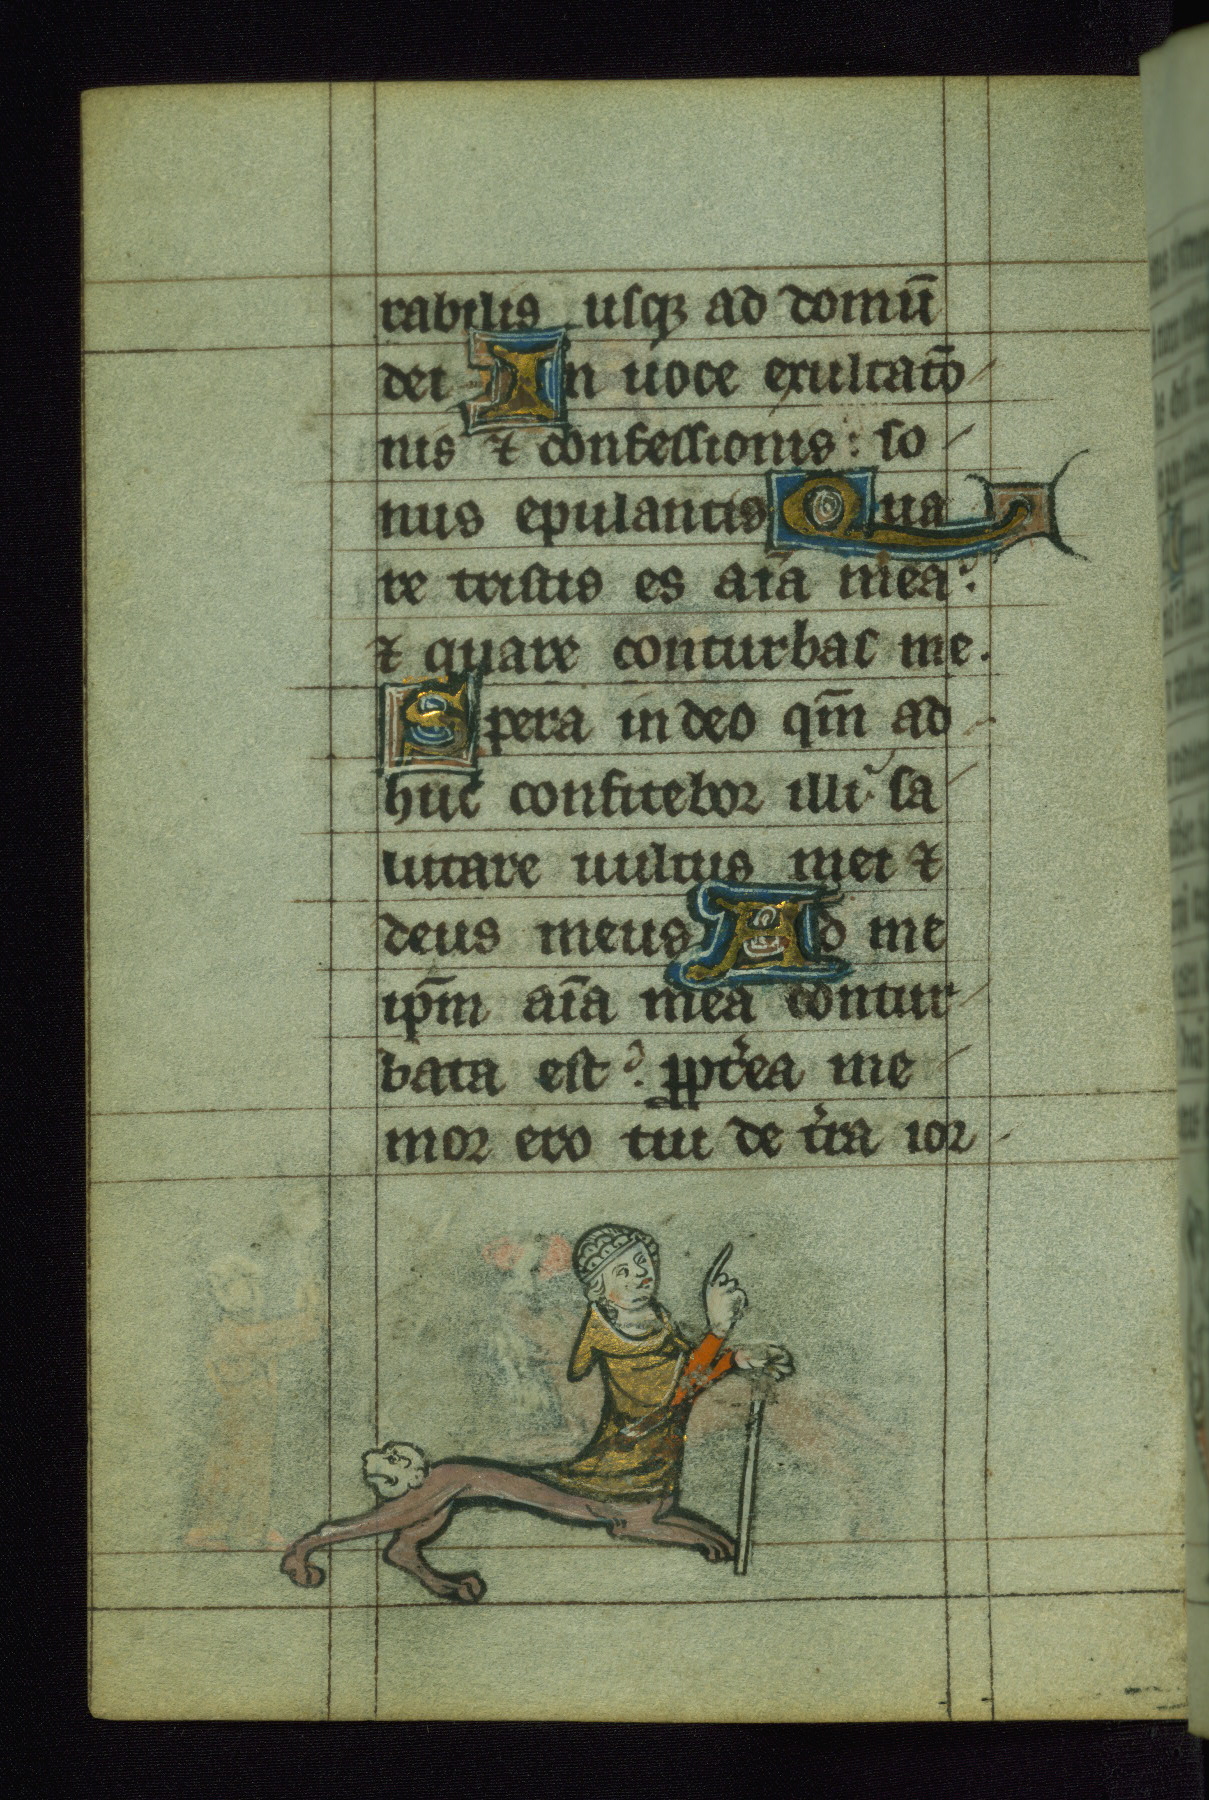 rabilis usq; ad domū
dei In uoce exultatō
nis ⁊ confessionis : so
nus epulantis Qua
re tristis es aīa mea?
⁊ quare conturbas me.
Spera in deo qm̄ ad
huc confitebor illi sa
lutare uultus mei ⁊
deus meus Ad me
ip̄m aīa mea contur
bata est? ꝓpt̾ea me
mor ero tui de t̾ra ior